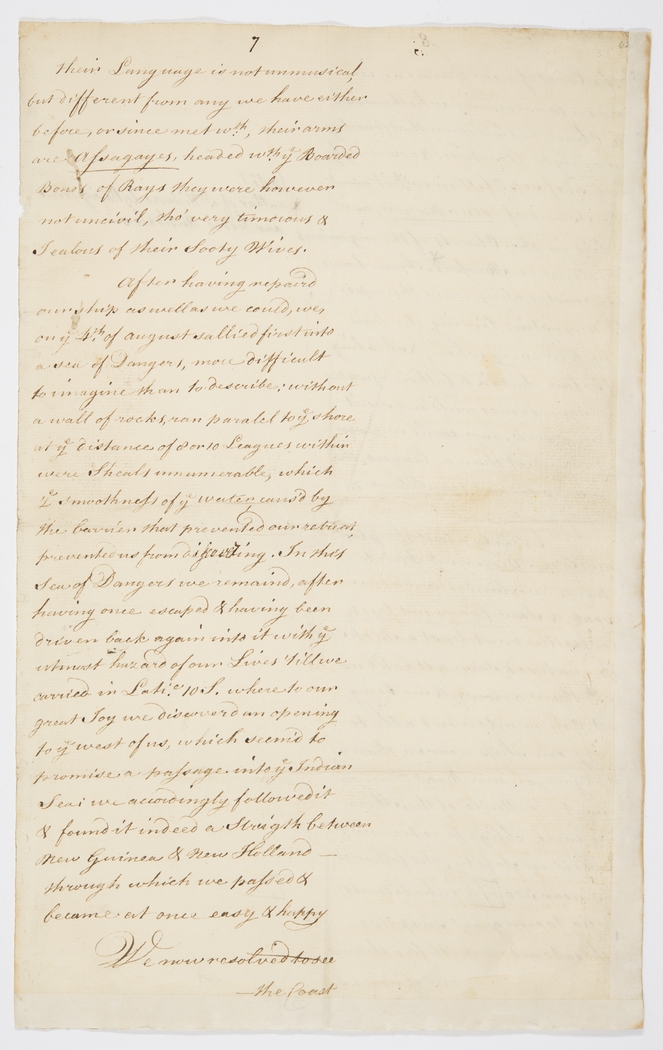 7
their Language is not unmusical,
but different from any we have either
before, or since met wth, their arms
are Assagayes, headed wth ye Boarded
Bones of Rays they were however
not uncivil, tho' very timorous &
Jealous of their Sooty Wives.
After having repair'd
our ship as well as we could, we,
on ye 4th of august sallied first into
a sea of Dangers, more difficult
to imagine than to describe: without
a wall of rocks, ran paralel to ye shore
at ye distance of 8 or 10 Leagues within
were Shoals innumerable, which
ye smoothness of ye water, caus'd by
the barrier that prevented our retreat,
prevented us from
In this
Sea of Dangers we remain'd, after
having once escaped & having been
driven back again into it with ye
utmost hazard of our Lives 'till we
carried in Lati:e 10 S. where to our
great Joy we discover'd an opening
to ye west of us, which seem'd to
promise a passage into ye Indian
Sea: we accordingly followed it
& found it indeed a Strigth between
New Guinea & New Holland —
through which we passed &
became at once easy & happy
We now resolved to see
—the Coast